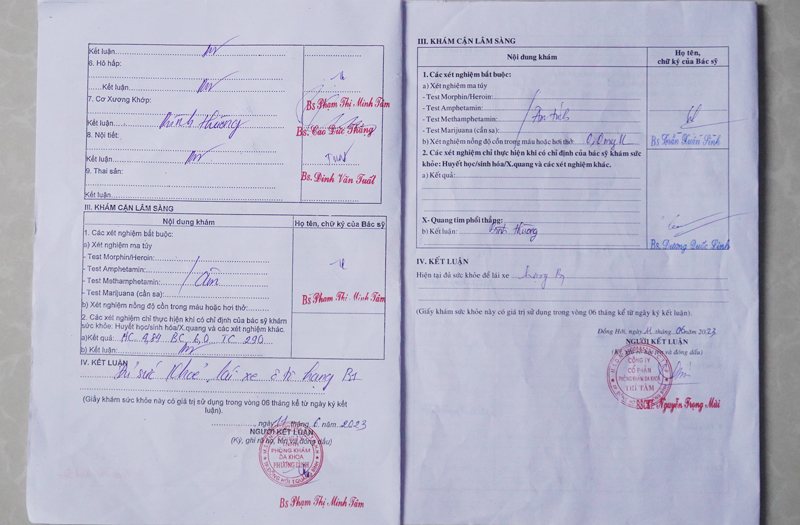 Kết luận
6. Hô hấp:
Kết luận
7. Cơ Xương Khớp:
Bs Phạm Thị Minh Tâm
Kết luận Bình thường
Bs. Cao Đức Thắng
8. Nội tiết:
Kết luận
9. Thai sản:
Bs. Đinh Văn Tuất
Kết luận
III. KHÁM CẬN LÂM SÀNG
Nội dung khám
Họ tên, chữ ký của Bác sỹ
1. Các xét nghiệm bắt buộc:
a) Xét nghiệm ma túy
- Test Morphin/Heroin:
- Test Amphetamin:
- Test Methamphetamin:
- Test Marijuana (cần sa):
Âm
Bs Phạm Thị Minh Tâm
b) Xét nghiệm nồng độ cồn trong máu hoặc hơi thở:
2. Các xét nghiệm chỉ thực hiện khi có chỉ định của bác sỹ khám
sức khỏe: Huyết học/sinh hóa/X.quang và các xét nghiệm khác.
a) Kết quả: HC 4,84 BC 6,0 TC 290
b) Kết luận:
IV. KẾT LUẬN
Đủ sức khoẻ lái xe ô tô hạng B1
(Giấy khám sức khỏe này có giá trị sử dụng trong vòng 06 tháng kể từ ngày ký kết
luận).
, ngày 11 tháng 6 năm 2023
NGƯỜI KẾT LUẬN
(Ký, ghi rõ họ, tên và đóng dấu)
PHÒNG KHÁM
ĐA KHOA
Bs Phạm Thị Minh Tâm
III. KHÁM CẬN LÂM SÀNG
Nội dung khám
Họ tên,
chữ ký của Bác sỹ
1. Các xét nghiệm bắt buộc:
a) Xét nghiệm ma túy
- Test Morphin/Heroin:
- Test Amphetamin:
- Test Methamphetamin:
- Test Marijuana (cần sa):
Âm tính
b) Xét nghiệm nồng độ cồn trong máu hoặc hơi thở:
2. Các xét nghiệm chỉ thực hiện khi có chỉ định của bác sỹ khám sức
khỏe: Huyết học/sinh hóa/X.quang và các xét nghiệm khác.
a) Kết quả:
X- Quang tim phổi thẳng:
b) Kết luận: Bình thường
Bs. Dương Quốc Bình
IV. KẾT LUẬN
Hiện tại đủ sức khỏe để lái xe hạng B1
(Giấy khám sức khỏe này có giá trị sử dụng trong vòng 06 tháng kể từ ngày ký kết luận).
Đồng Hới, ngày 11 tháng 06 năm 2023
NGƯỜI KẾT LUẬN
CÔNG TY
CỔ PHẦN
PHÒNG KHÁM ĐA KHOA
TRÍ TÂM
BSCKI. Nguyễn Trọng Mùi